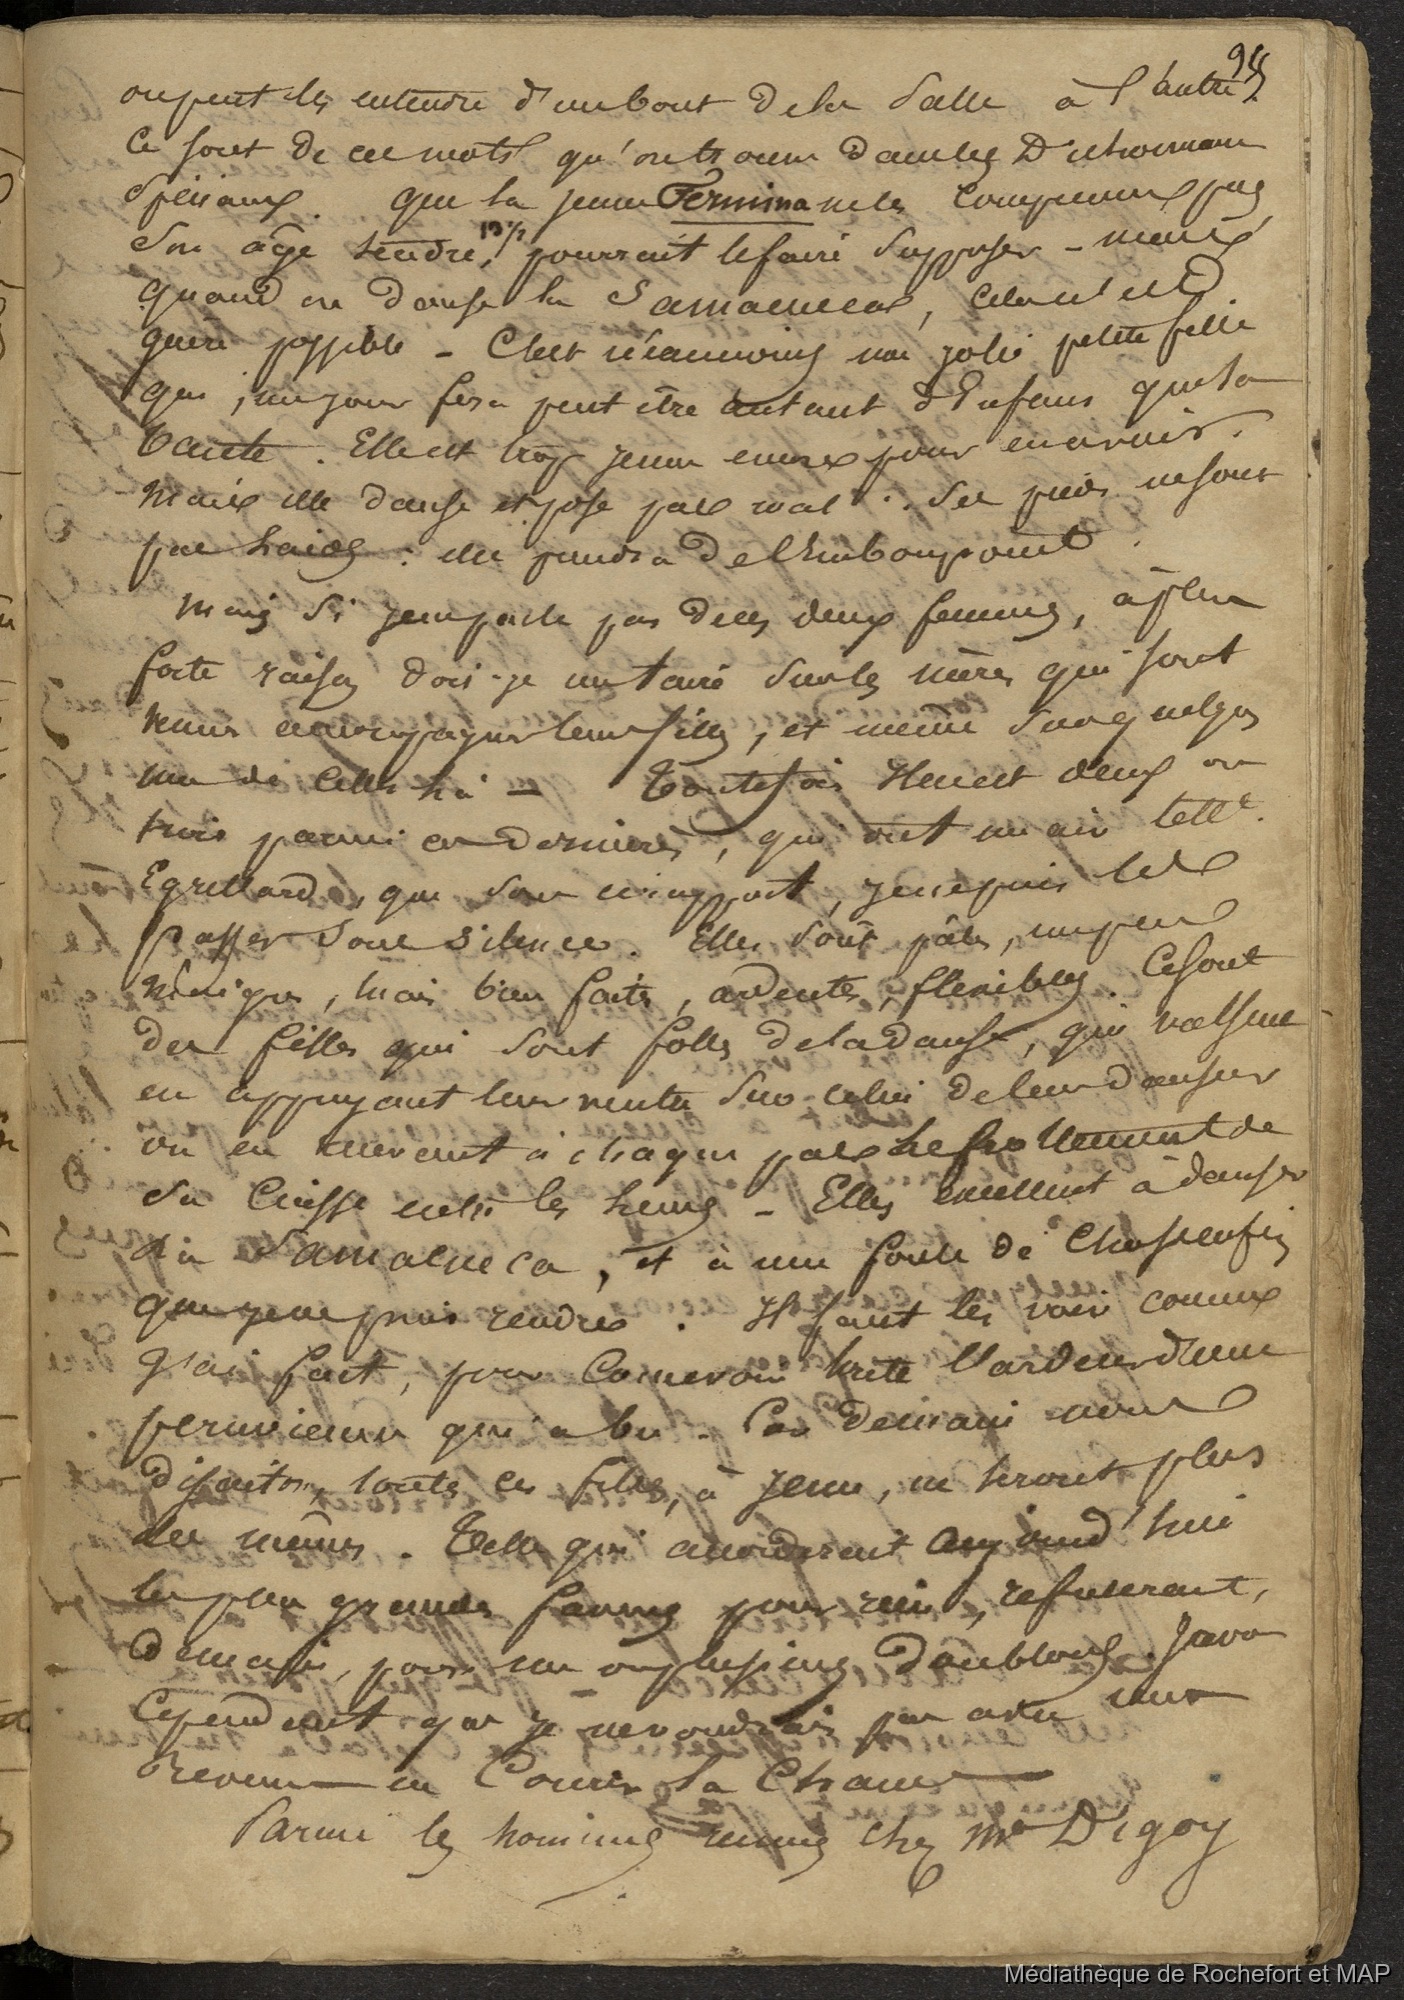 95
on peut les entendre d'un bout de la Salle à l'autre.
Ce sont de ces mots qu'on trouve dans les Dictionnaires
Spéciaux. que la jeune Fermina ne les comprenne pas,
Son âge tendre, 13 1/2 pourrait le faire supposer - mais
quand on danse la Samacueca, cela n'est
guère possible - C'est néanmoins une jolie petite fille
qui, un jour fera peut être autant d'Enfans que sa
tante. Elle est trop jeune encore pour en avoir.
Mais elle danse et pose pas mal. Ses pieds ne sont
pas laids : elle prendra de l'Embonpoint.
Mais si je ne parle pas de ces deux femmes, à plus
forte raison dois-je me taire sur les mères qui sont
venues accompagner leurs filles, et même sur quelques
unes de celles ci - Toutefois Il en est deux ou
trois parmi ces dernières, qui ont un air tellt.
Egrillard, que sous ce rapport, je ne puis les
passer sous silence. Elles sont pâles, un peu
maigres, mais bien faites, ardentes, flexibles. Ce sont
des filles qui sont folles de la danse, qui valsent
en appuyant leur ventre sur celui de leur danseur
ou en recevant à chaque pas le frottement de
sa cuisse entre les leurs - Elles excellent à danser
la Samacueca, et à une foule de choses enfin
que je ne puis rendre. Il faut les voir comme
j'ai fait, pour concevoir toute l'ardeur d'une
péruvienne qui a bu. Car demain nous
disait-on, toutes ces filles, à jeun, ne seront plus
les mêmes. Telle qui accorderait aujourd'hui
les plus grandes faveurs pour rien, refuserait,
demain, pour une ou plusieurs doublons. J'avoue
Cependant que je ne voudrais pas avec leur
revenu en Courir la Chance
Parmi les hommes réunis chez Mr Digoy
Médiathèque de Rochefort et MAP